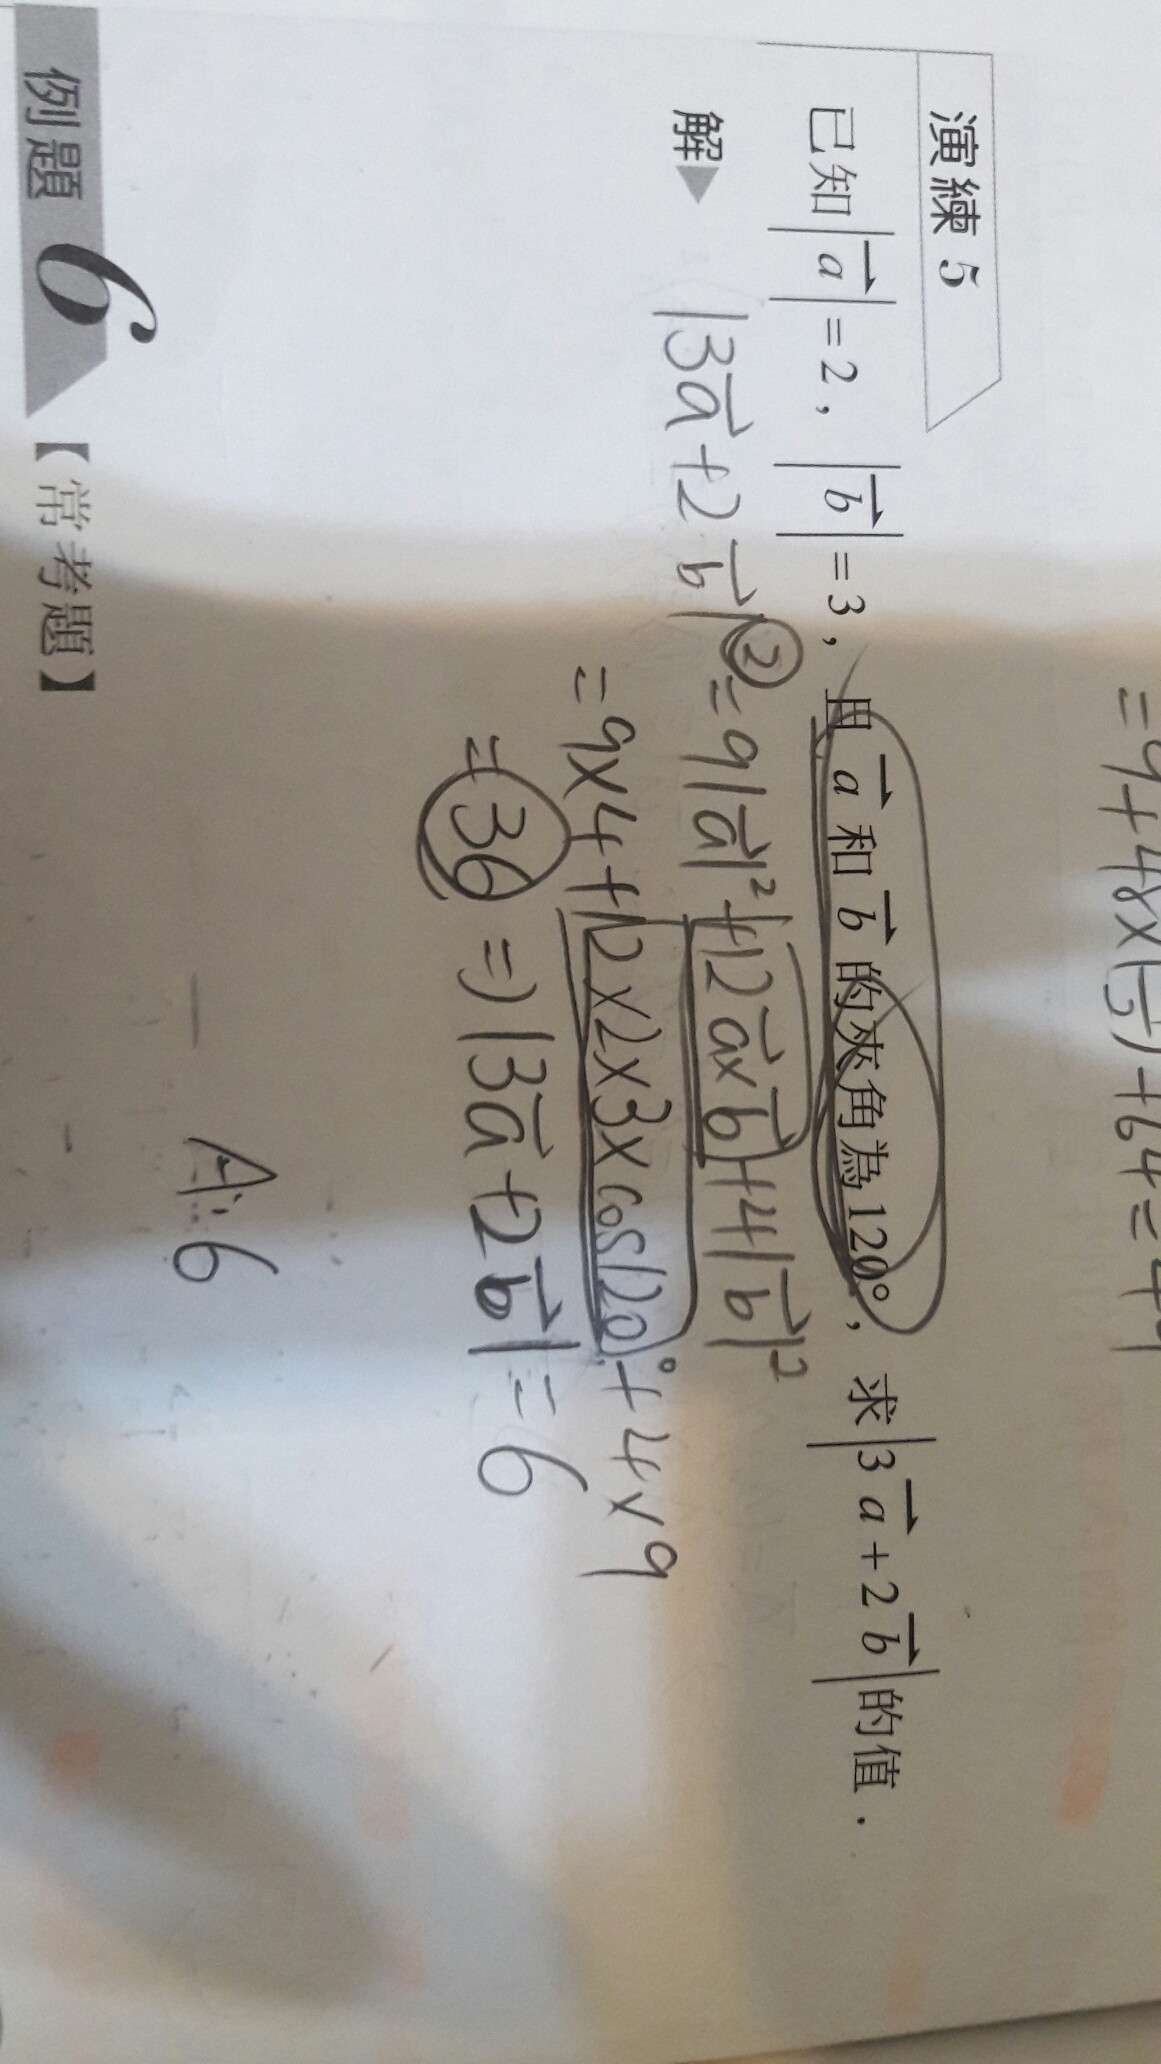 =9+48×(-5)+64=49
演練 5
已知|a⃗|=2，|b⃗|=3，且a⃗和b⃗的夾角為120°，求|3a⃗+2b⃗|的值．
解▶ |3a⃗+2b⃗|²=9|a⃗|²+12a⃗×b⃗+4|b⃗|²
=9×4+12×2×3×cos120°+4×9
=36 ⇒|3a⃗+2b⃗|=6
A:6
例題 6 【常考題】